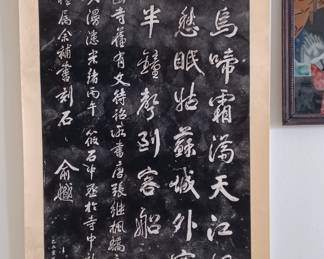 烏啼霜滿天江
愁眠姑蘇城外寒
半鐘聲到客船
山寺舊有文待詔所書唐張繼楓橋
久漫漶光緒丙午筱石中丞於寺中新
楹屬余補書刻石
俞樾